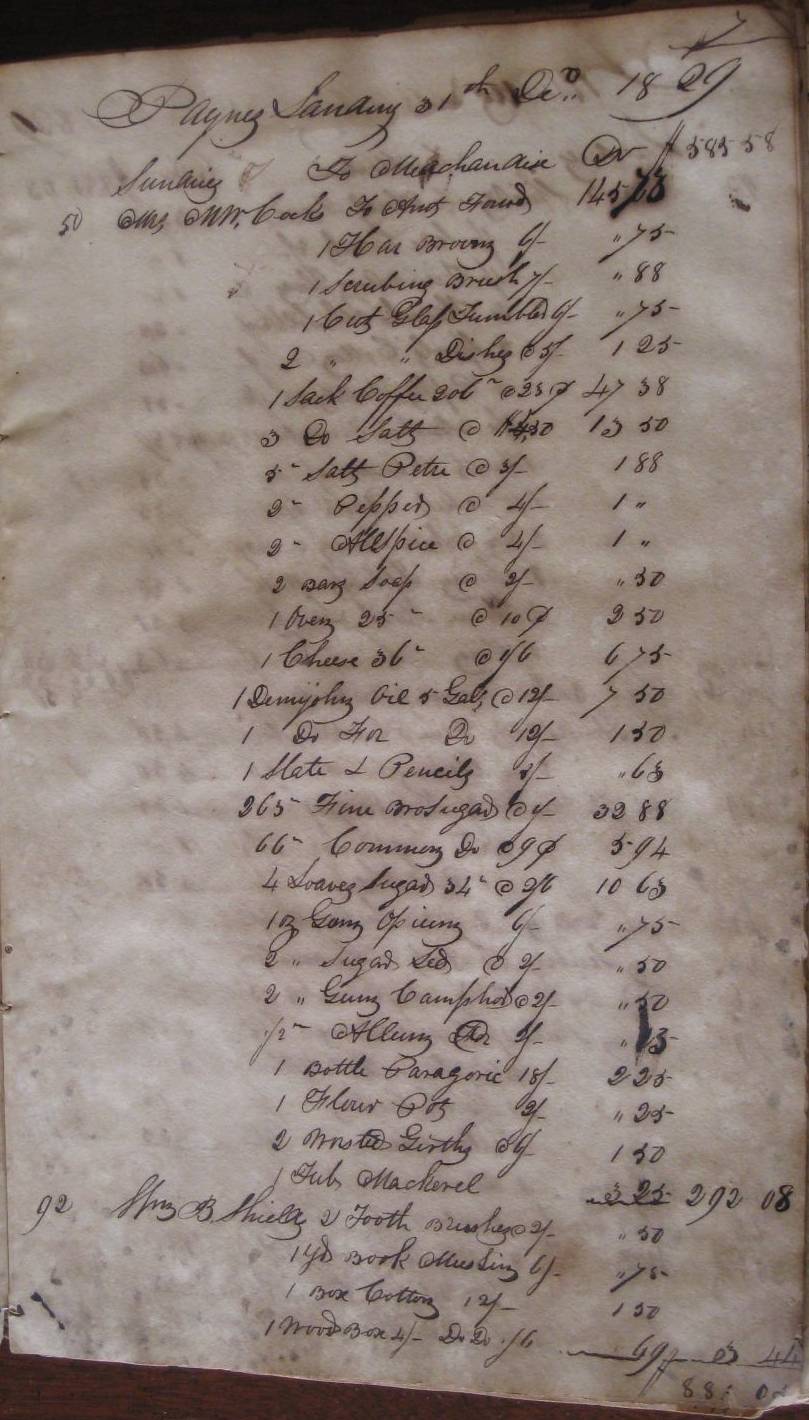 7
Paynes Landing 31th Dec 1829
Sundries To Merchandise Dr $585 58
50 Mrs MW. Cocks To Amt Forwd 145
1 Hair Broom 6/- " 75
1 Scrubing Brush 7/- " 88
1 Cut Glass Tumbler 6/- " 75
2 " " Dishes @ 5/- 1 25
1 Sack Coffee 206 @ 23 ¢ 47 38
3 Do Salt @ 4.50 13 50
5 Salt Petre @ 3/- 1 88
2 Pepper @ 4/- 1 "
2 Allspice @ 4/- 1 "
2 Bars Soap @ 2/- " 50
1 Oven 25 @ 10 ¢ 2 50
1 Cheese 36 @ 1/6 6 75
1 Demijohn Oil 5 Gals @ 12/- 7 50
1 Do For Do 12/- 1 50
1 Slate & Pencils 5/- " 63
263 Fine Bro Sugar @ 1/- 32 88
66 Common Do @ 9 ¢ 5 94
4 Loaves Sugar 34 @ 2/6 10 63
1 oz Gum Opium 6/- " 75
2 " Sugar Led @ 2/- " 50
2 " Gum Camphor @ 2/- " 50
1/2 Allum 2/- " 13
1 Bottle Paragoric 18/- 2 25
1 Flour Pot 2/- " 25
2 Worsted Girths @ 6/- 1 50
1 Tub Mackerel 3 25 292 08
92 Wm B Shields 2 Tooth Brushes @ 2/- " 50
1 yd Book Muslin 6/- " 75
1 Box Cotton 12/- 1 50
1 Wood Box 4/- Do Do 1/6 69 3 44